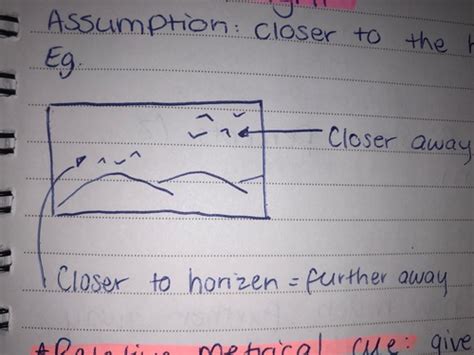 Assumption: closer to the
Eg.
Closer away
Closer to horizen = further away
metrical cue: give